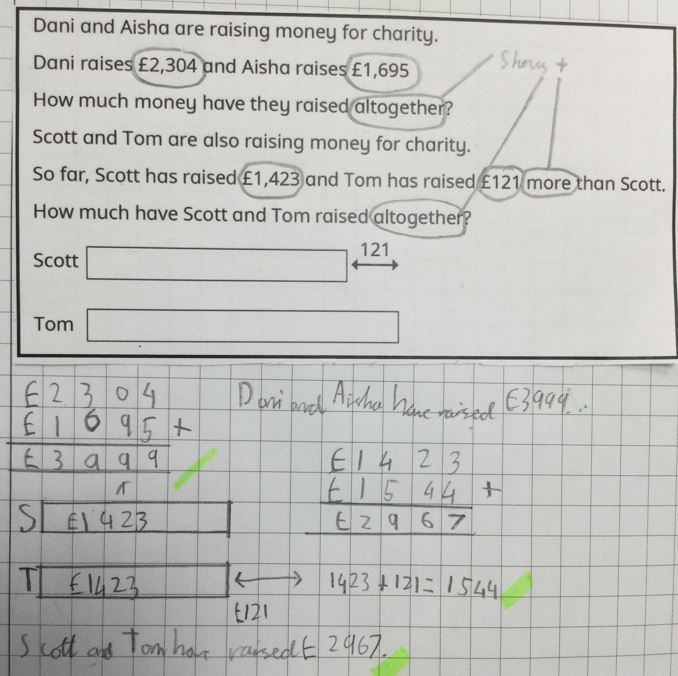 Dani and Aisha are raising money for charity.
Dani raises £2,304 and Aisha raises £1,695
Shows +
How much money have they raised altogether?
Scott and Tom are also raising money for charity.
So far, Scott has raised £1,423 and Tom has raised £121 more than Scott.
How much have Scott and Tom raised altogether?
Scott
121
Tom
£2304
£1695+
£3999
Dani and Aisha have raised £3999.
£1423
£1544 +
£2967
S £1423
T £1423
£121
1423+121=1544
Scott and Tom have raised £2967.